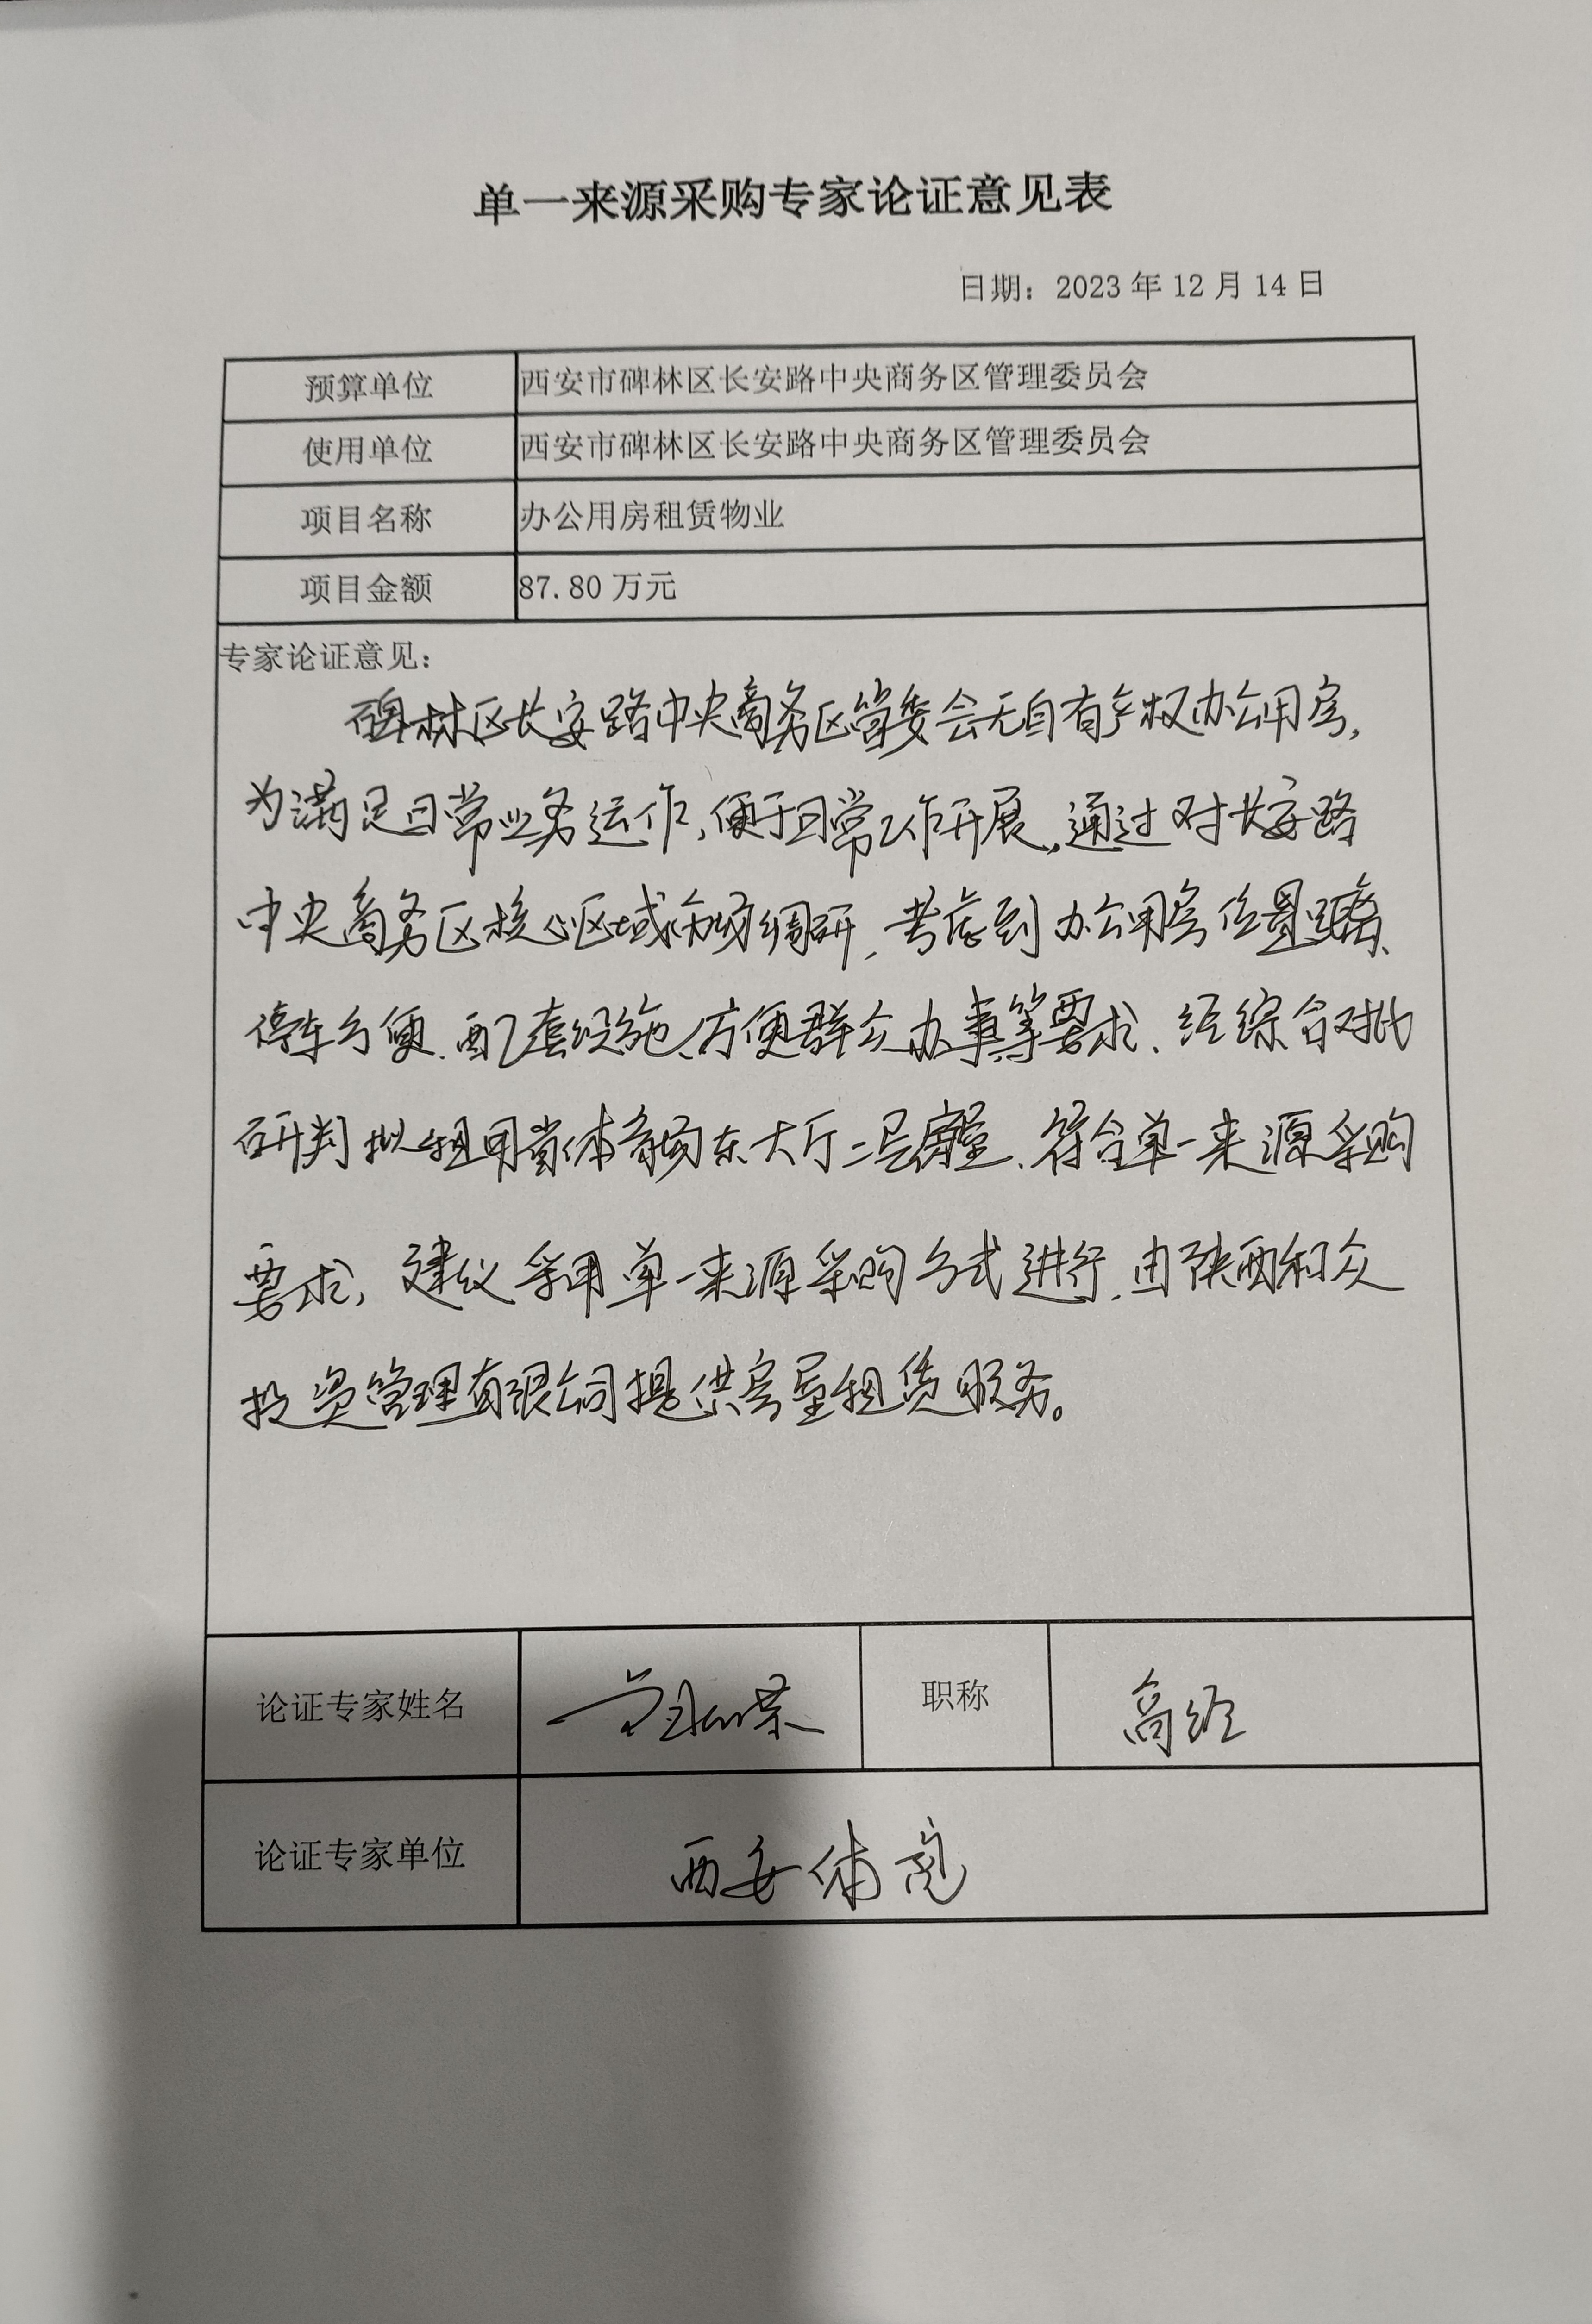 单一来源采购专家论证意见表
日期：2023年12月14日
预算单位 西安市碑林区长安路中央商务区管理委员会
使用单位 西安市碑林区长安路中央商务区管理委员会
项目名称 办公用房租赁物业
项目金额 87.80万元
专家论证意见：
碑林区长安路中央商务区管委会无自有产权办公用房，
为满足日常业务运作，便于日常工作开展，通过对长安路
中央商务区核心区域市场调研，考虑到办公用房位置、
停车方便、配套设施、方便群众办事等要求、经综合对比
研判拟租用省体育场东大厅二层房屋、符合单一来源采购
要求，建议采用单一来源采购方式进行，由陕西和众
投资管理有限公司提供房屋租赁服务。
论证专家姓名 职称 高经
论证专家单位 西安